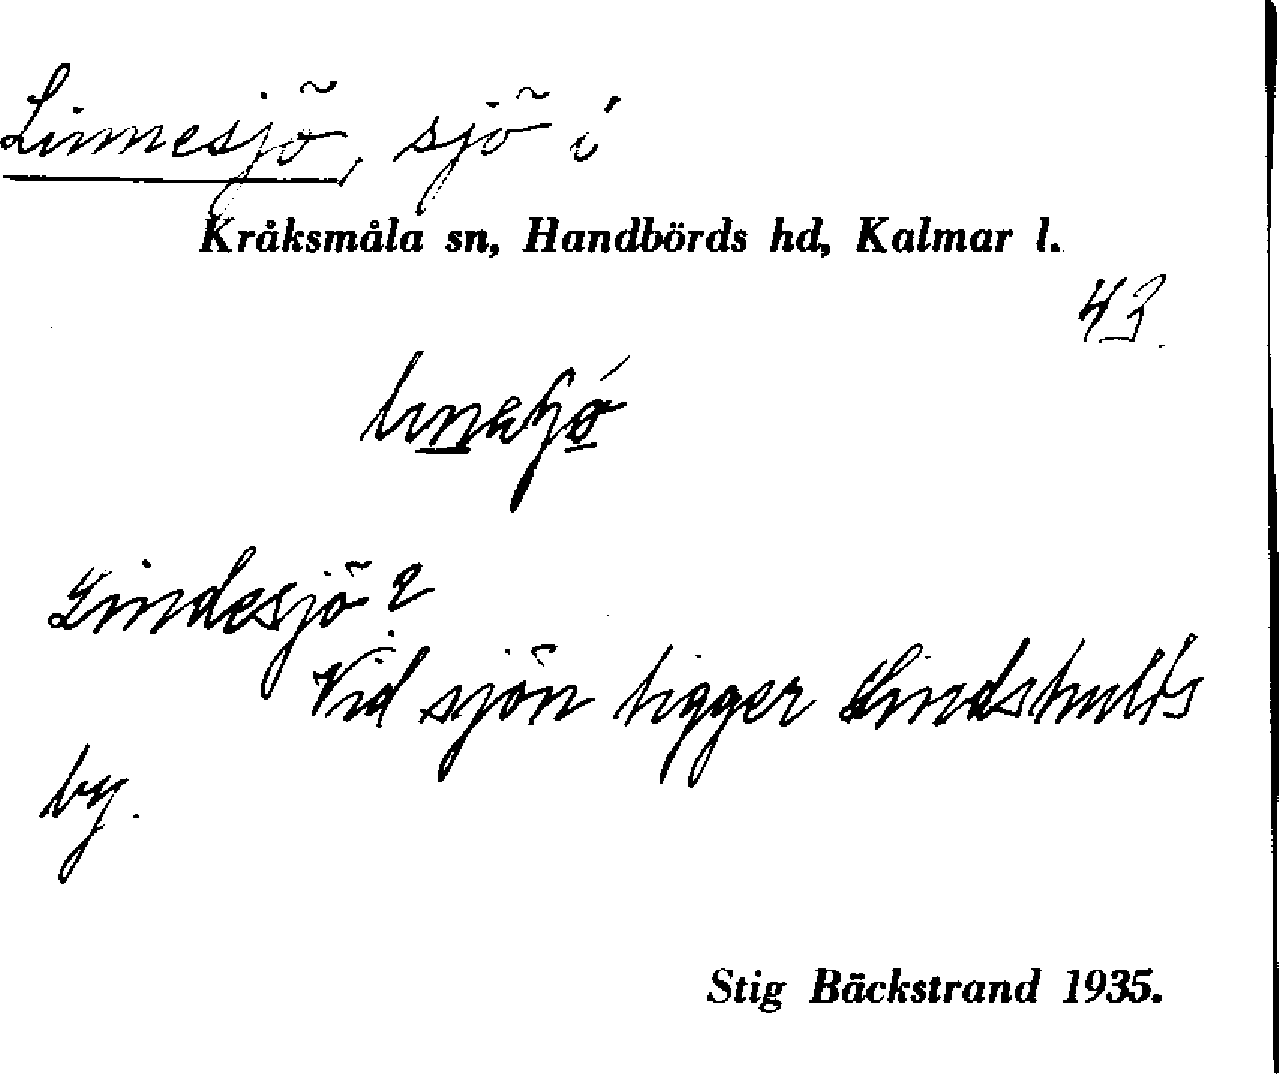 Linnesjö, sjö i
Kråksmåla sn, Handbörds hd, Kalmar l.
43.
Lindesjö?
Vid sjön ligger Lindshults
by.
Stig Bäckstrand 1935.